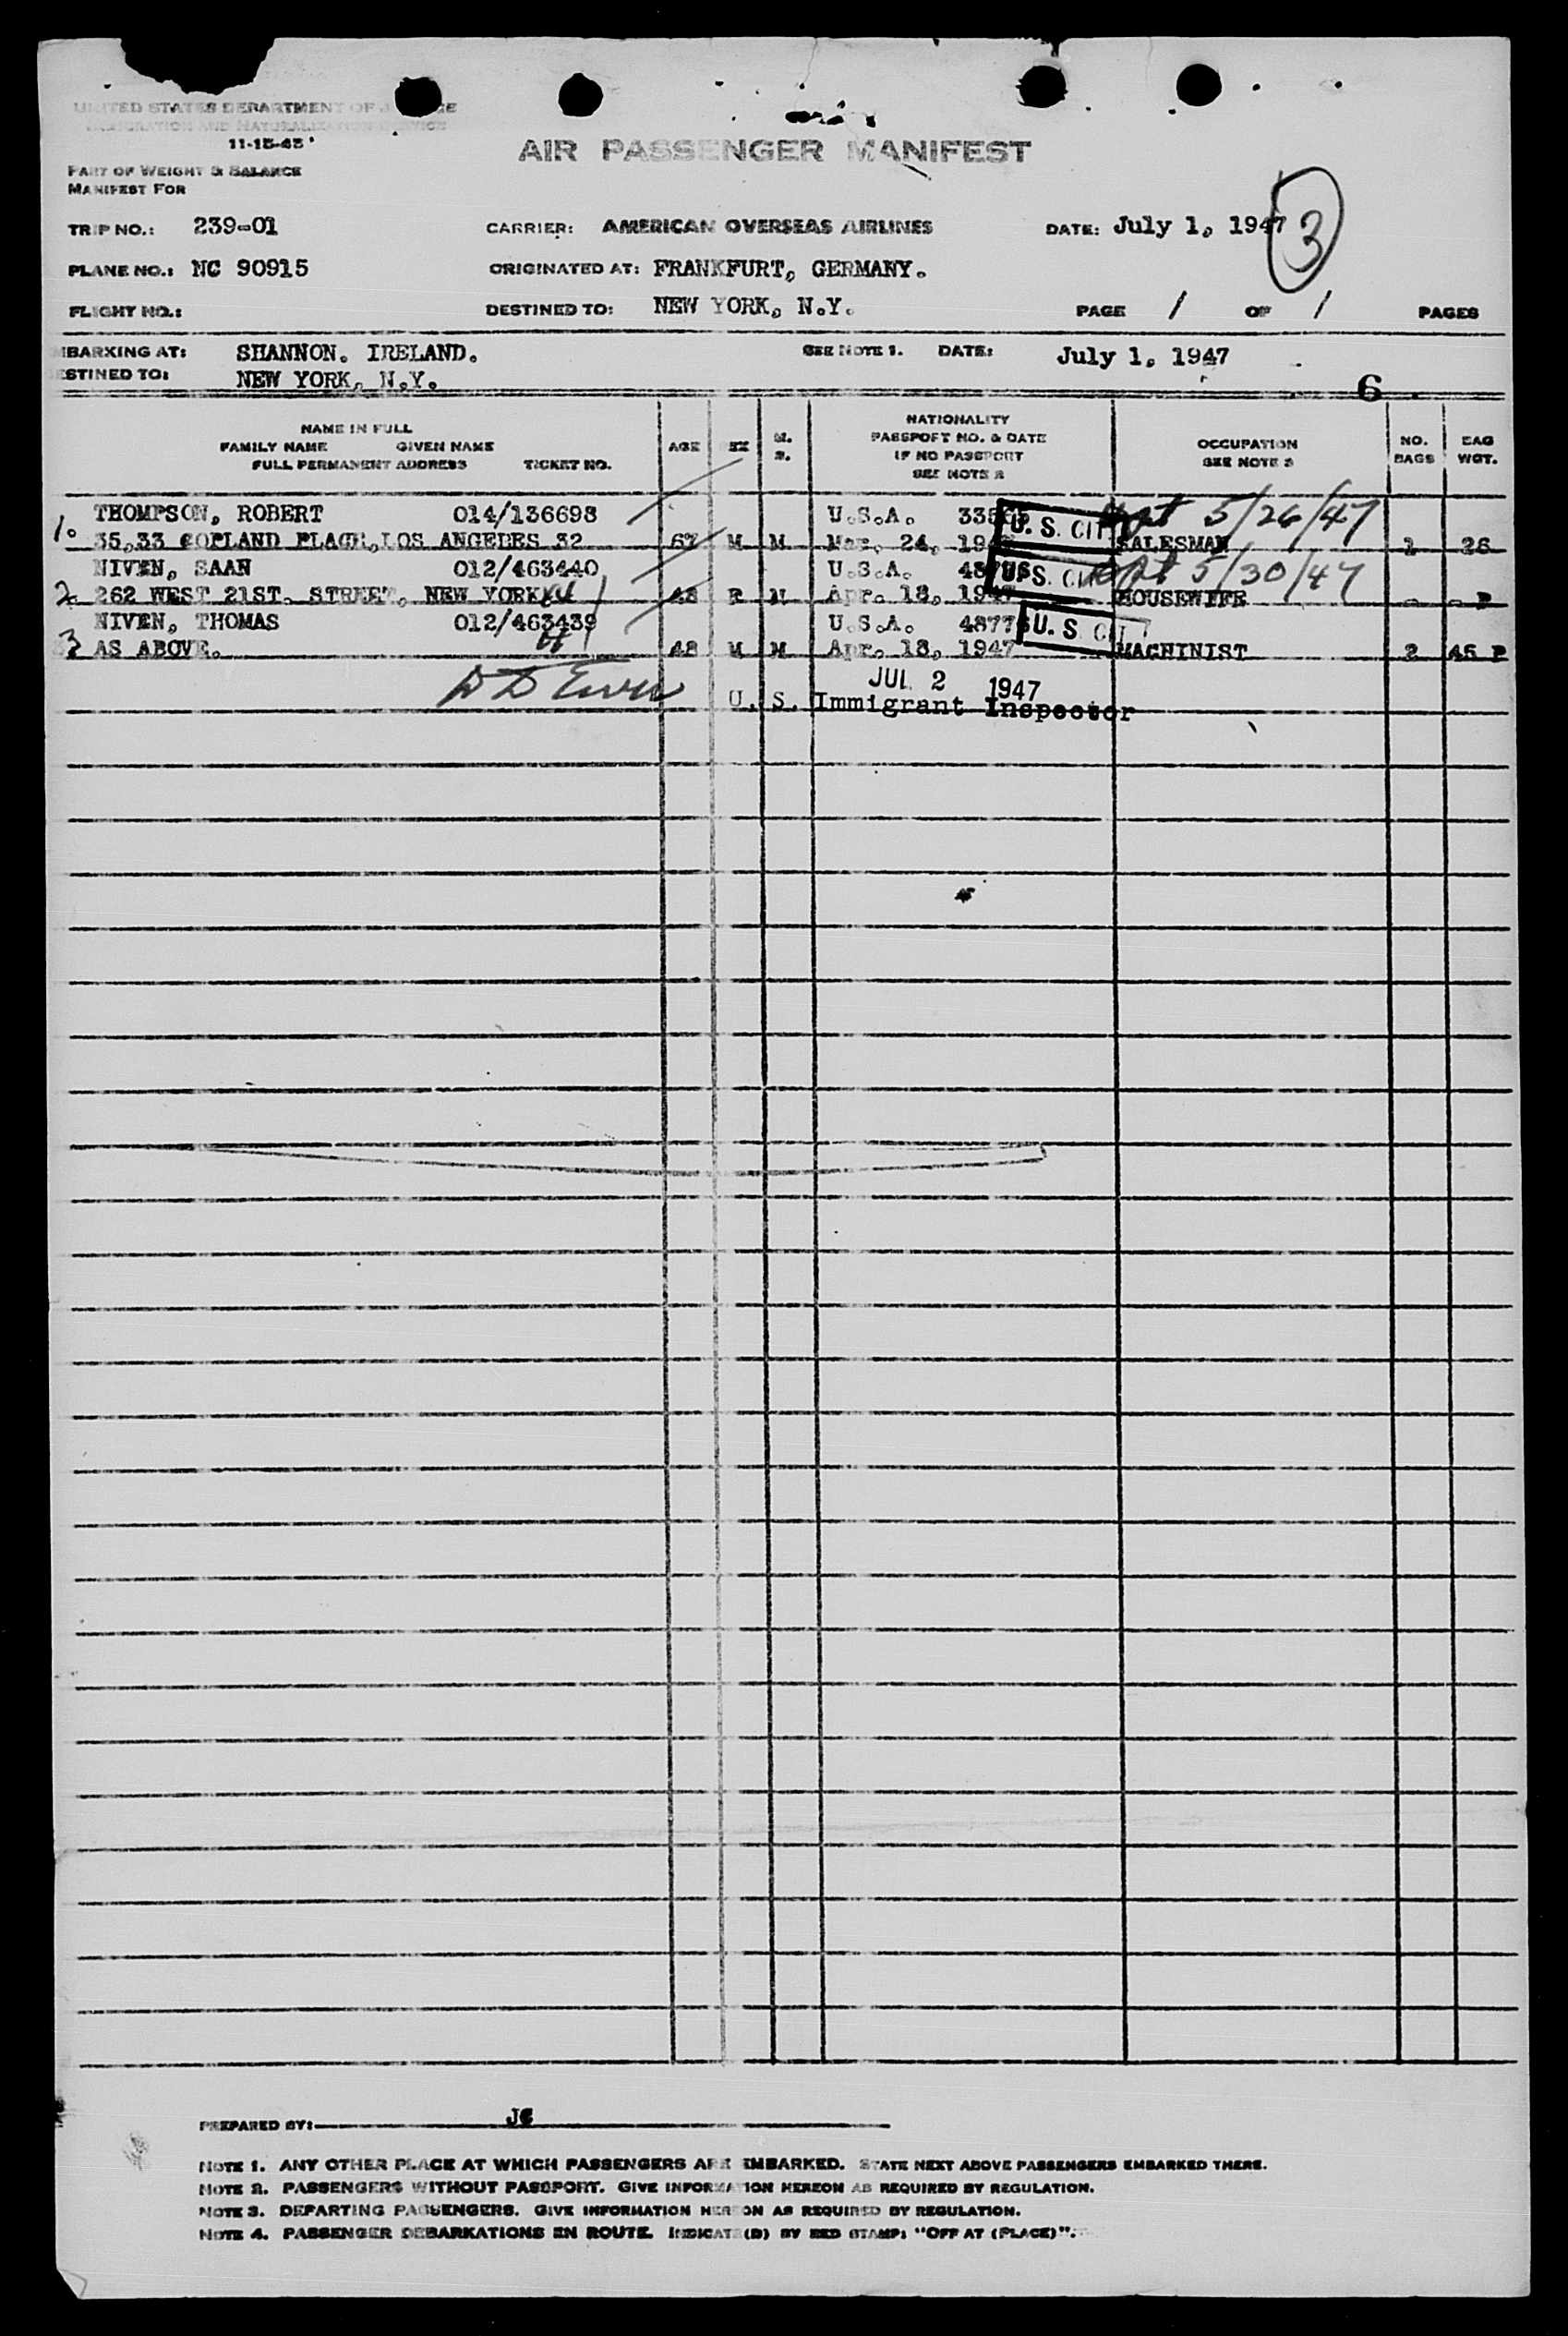 UNITED STATES DEPARTMENT OF JUSTICE
IMMIGRATION AND NATURALIZATION SERVICE
11-15-45
AIR PASSENGER MANIFEST
PART OF WEIGHT & BALANCE
MANIFEST FOR
TRIP NO.: 239-01 CARRIER: AMERICAN OVERSEAS AIRLINES DATE: July 1, 1947 3
PLANE NO.: NC 90915 ORIGINATED AT: FRANKFURT, GERMANY.
FLIGHT NO.: DESTINED TO: NEW YORK, N.Y. PAGE 1 OF 1 PAGES
MBARKING AT: SHANNON. IRELAND. SEE NOTE 1. DATE: July 1, 1947
ESTINED TO: NEW YORK, N.Y.
6
NAME IN FULL
FAMILY NAME GIVEN NAME
FULL PERMANENT ADDRESS TICKET NO.
AGE SEX M. S.
NATIONALITY
PASSPORT NO. & DATE
IF NO PASSPORT
SEE NOTE 2
OCCUPATION
SEE NOTE 3
NO. BAGS
BAG WGT.
THOMPSON, ROBERT 014/136698 U.S.A. U. S. CIT 5/26/47
1. 35,33 COPLAND PLACE, LOS ANGEDES 32 67 M M Mar. 24, 194 SALESMAN 1 26
NIVEN, SAAN 012/463440 U.S.A. U. S. CIT 5/30/47
2. 262 WEST 21ST. STREET, NEW YORK 48 F M Apr. 18, 1947 HOUSEWIFE - - P
NIVEN, THOMAS 012/463439 U.S.A. 4877 U. S. CIT
3. AS ABOVE. 48 M M Apr. 18, 1947 MACHINIST 2 45 P
JUL 2 1947
U. S. Immigrant Inspector
PREPARED BY: JC
NOTE 1. ANY OTHER PLACE AT WHICH PASSENGERS ARE EMBARKED. STATE NEXT ABOVE PASSENGERS EMBARKED THERE.
NOTE 2. PASSENGERS WITHOUT PASSPORT. GIVE INFORMATION HEREON AS REQUIRED BY REGULATION.
NOTE 3. DEPARTING PASSENGERS. GIVE INFORMATION HEREON AS REQUIRED BY REGULATION.
NOTE 4. PASSENGER DEBARKATIONS EN ROUTE. INDICATE(D) BY RED STAMP: "OFF AT (PLACE)".